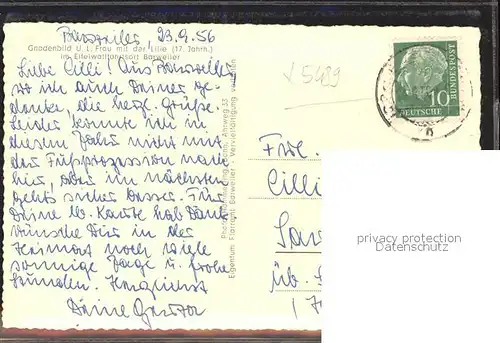 Barweiler, 23.9.56
Gnadenbild U. L. Frau mit der Lilie (17. Jahrh.)
im Eifelwallfahrtsort Barweiler
Liebe Cilli! Aus Barweiler
wo ich auch Deiner ge-
denke, die herzl. Grüße.
Leider konnte ich in
diesem Jahr nicht mit
der Fußprozession nach
hier, aber im nächsten
gehts sicher besser. Für
Deine lb. Karte hab Dank
wünsche Dir in der
Heimat noch viele
sonnige Tage u. frohe
Stunden. Herzlichst
Deine
Ahrweg 33
Eigentum Pfarramt Barweiler - Vervielfältigung verboten
√ 5489
DEUTSCHE
BUNDESPOST
10
Frl.
Cilli
üb.
privacy protection
Datenschutz